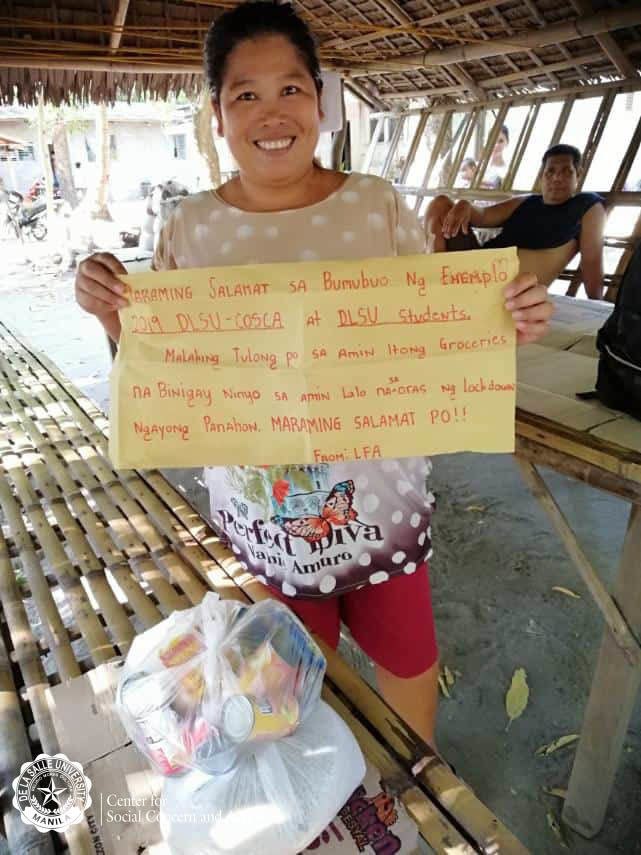 MARAMING SALAMAT SA BUMUBUO NG EHEMPLO
2019 DLSU-COSCA at DLSU Students.
MALAKING TULONG po SA AMIN ITONG GROCERIES
NA BINIGAY NINYO SA AMIN LALO NA SA ORAS NG lockdown
NGAYONG PANAHON. MARAMING SALAMAT PO!!
FROM: LFA
Perfect Diva
Amuro
DE LA SALLE UNIVERSITY
MANILA
Center for
Social Concern and